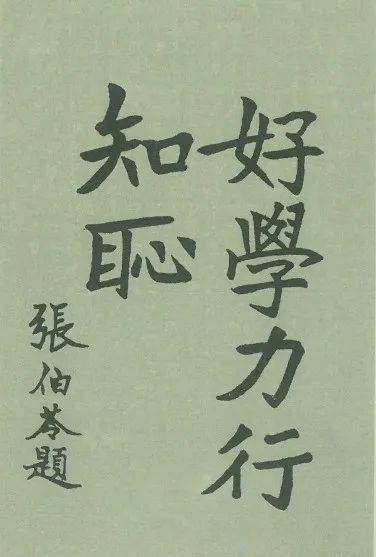 好學力行
知恥
張伯苓題